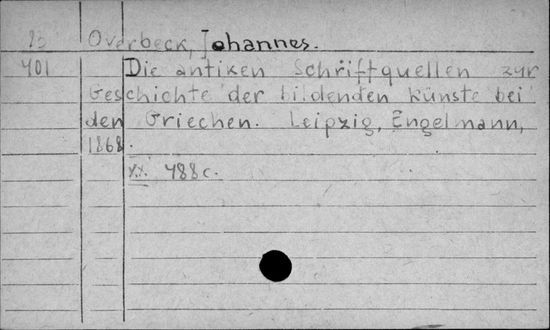 Overbeck, Johannes.
401 Die antiken Schriftquellen zur
Geschichte der bildenden Künste bei
den Griechen. Leipzig, Engelmann,
1868.
xx. 488 c.